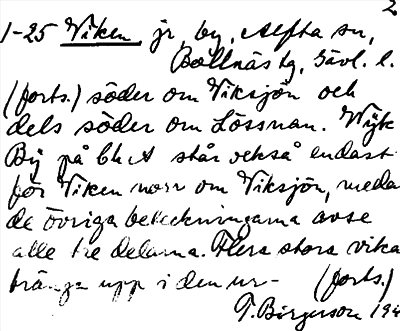 2
1-25 Viken jr, by, Alfta sn,
Bollnäs tg, Gävl. l.
(forts.) söder om Viksjön och
dels söder om Lössnan. Wijk
Bÿ på bl.A står också endast
för Viken norr om Viksjön, meda
de övriga beteckningarna avse
alle tre delarna. Flera stora vika
tränga upp i den ur- (forts.)
T. Birgerson 194